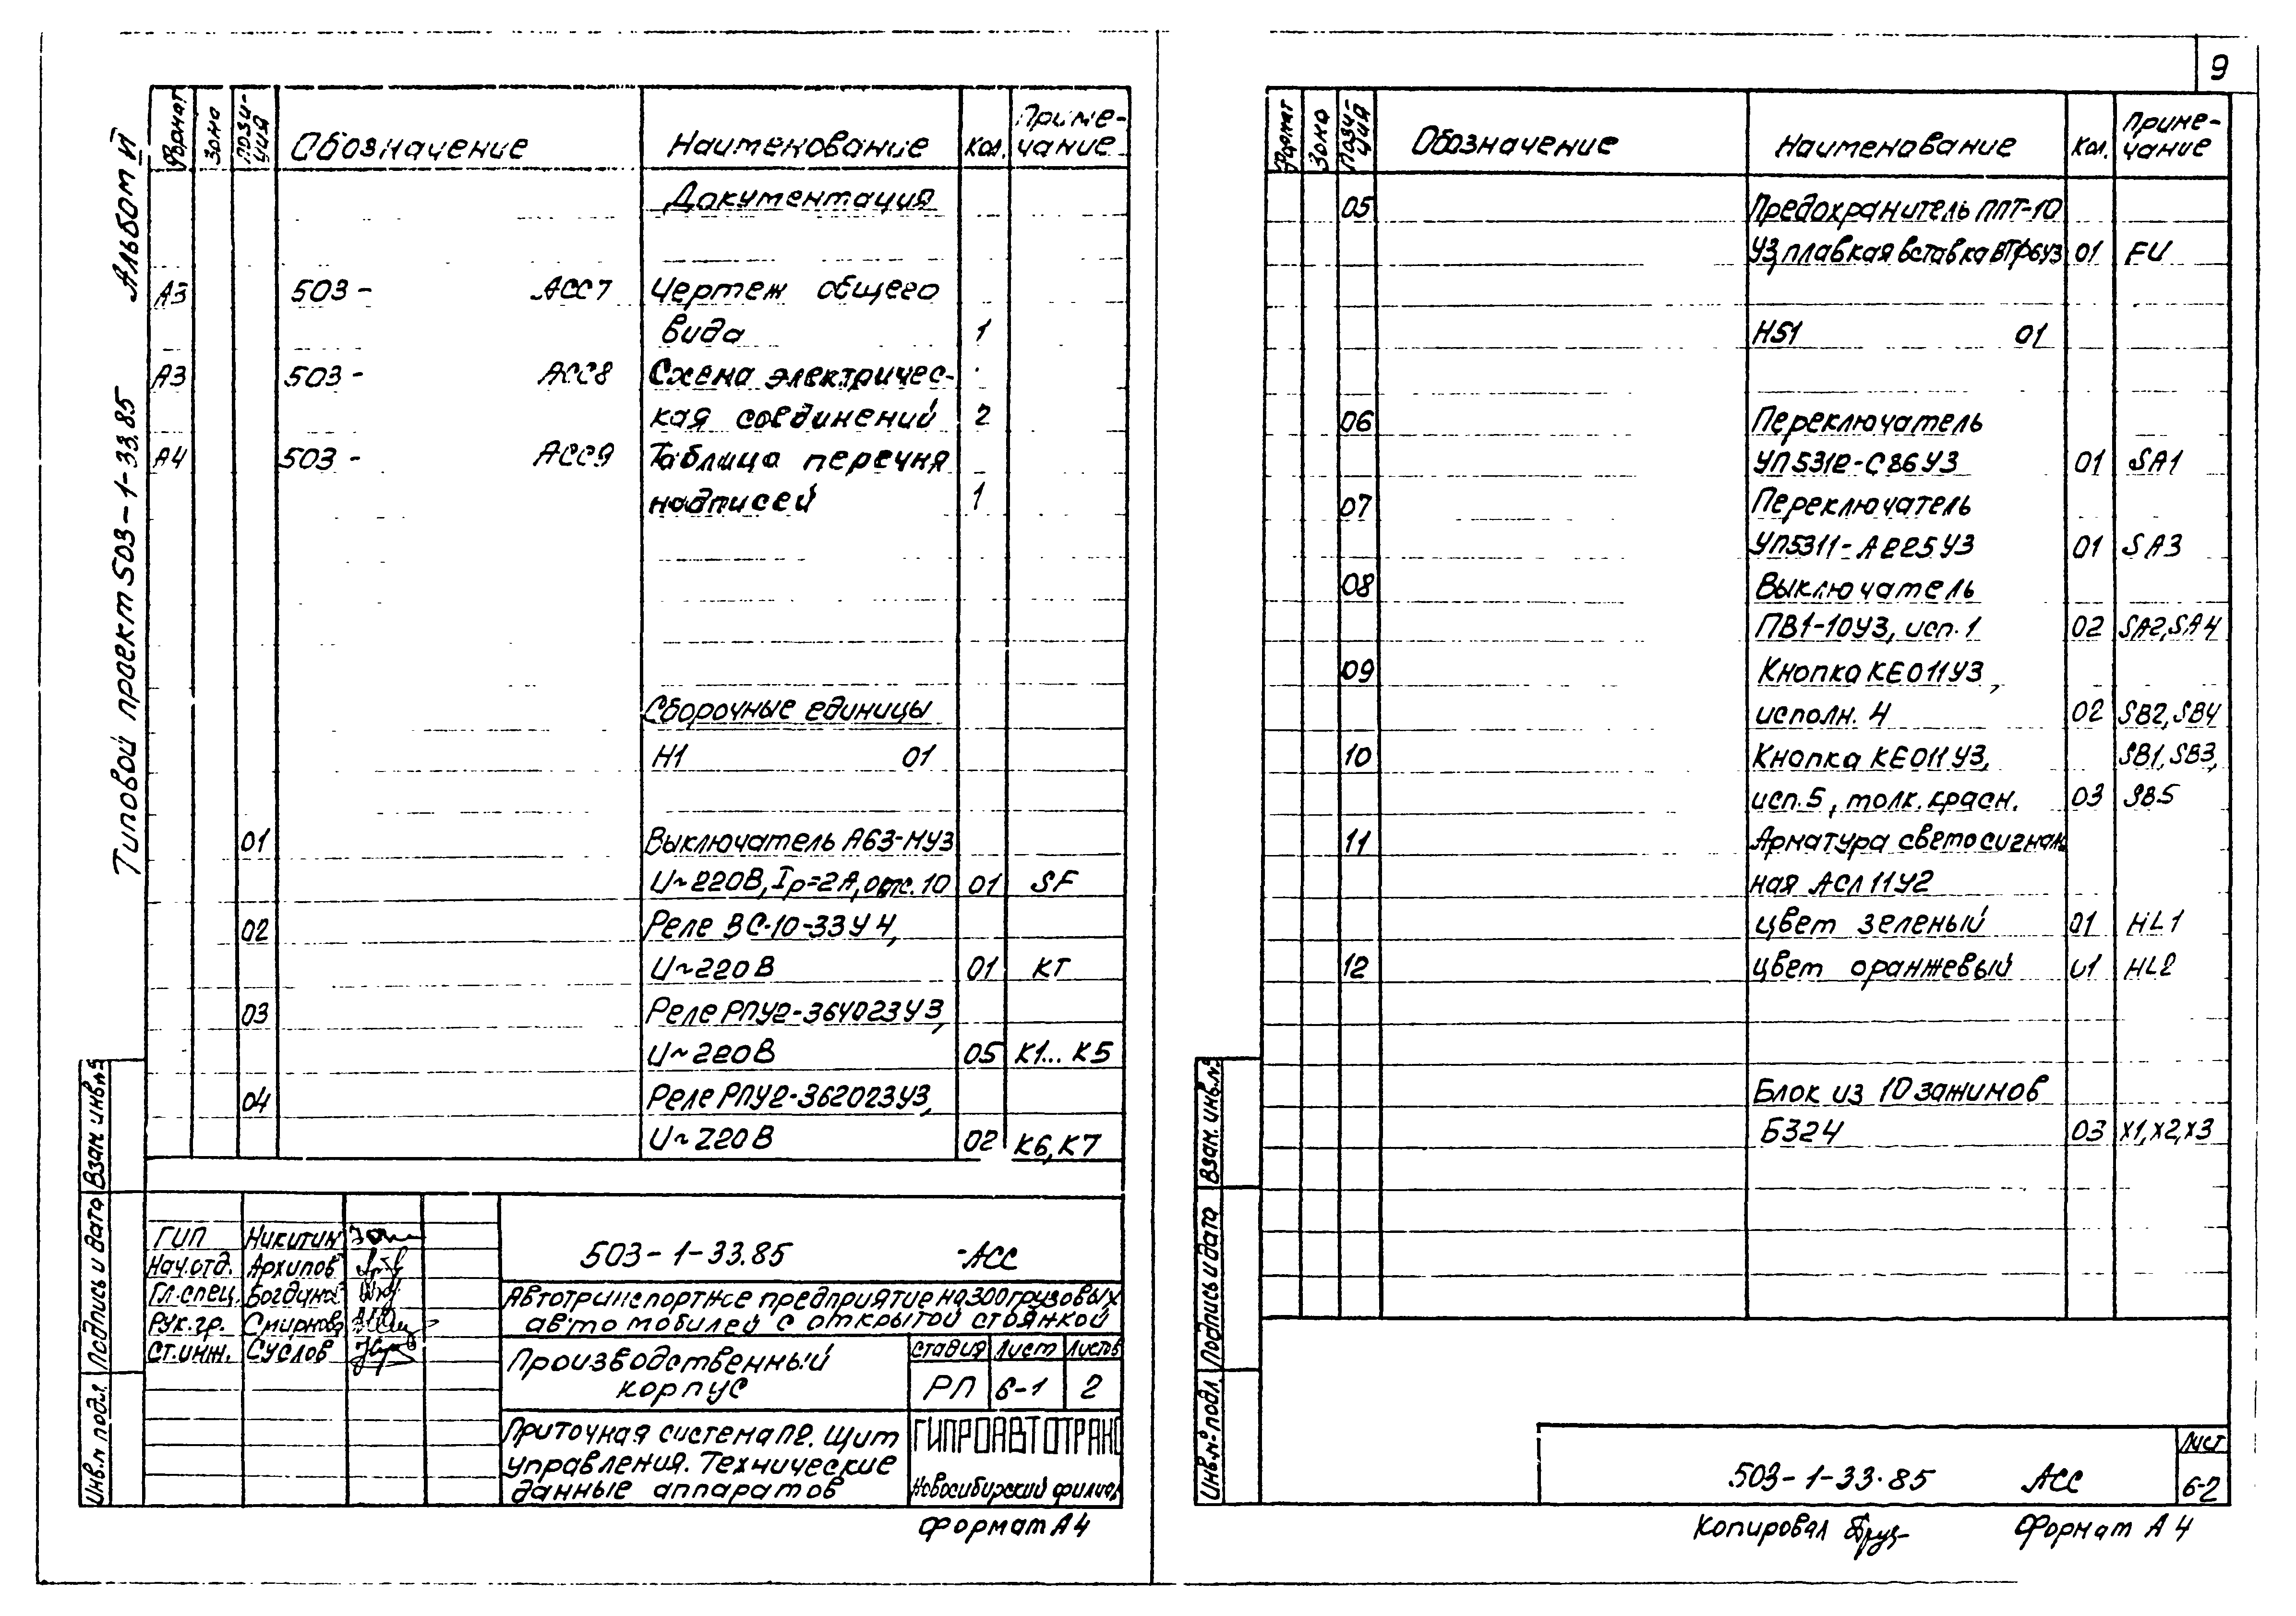 Типовой проект 503-1-33.85 Альбом II
Формат Зона Позиция Обозначение Наименование Кол. Примечание
Документация
А3 503- АСС7 Чертеж общего
вида 1
А3 503- АСС8 Схема электричес-
кая соединений 2
А4 503- АСС9 Таблица перечня
надписей 1
Сборочные единицы
Н1 01
01 Выключатель А63-МУ3
U~220В, Iр=2А, отс.10 01 SF
02 Реле ВС-10-33У4,
U~220В 01 КТ
03 Реле РПУ2-364023У3,
U~220В 05 К1...К5
04 Реле РПУ2-362023У3,
U~220В 02 К6,К7
Взам. инв.№
Подпись и дата
Инв.№ подл.
ГИП Никитин
Нач.отд. Архипов
Гл.спец. Богдина
Рук.гр. Смирнова
Ст.инж. Суслов
503-1-33.85 -АСС
Автотранспортное предприятие на 300 грузовых
автомобилей с открытой стоянкой
Производственный
корпус
Стадия Лист Листов
РП 6-1 2
Приточная система П2. Щит
управления. Технические
данные аппаратов
ГИПРОАВТОТРАНС
Новосибирский филиал
Формат А4
9
Формат Зона Позиция Обозначение Наименование Кол. Примечание
05 Предохранитель ППТ-10
У3, плавкая вставка ВТФ6У3 01 FU
Н51 01
06 Переключатель
УП5312-С86У3 01 SA1
07 Переключатель
УП5311-А225У3 01 SA3
08 Выключатель
ПВ1-10У3, исп.1 02 SA2,SA4
09 Кнопка КЕ011У3,
исполн. 4 02 SB2,SB4
10 Кнопка КЕ011У3, SB1,SB3,
исп.5, толк. красн. 03 SB5
11 Арматура светосигналь
ная АСЛ11У2
цвет зеленый 01 HL1
12 цвет оранжевый 01 HL2
Блок из 10 зажимов
БЗ24 03 Х1,Х2,Х3
Взам. инв.№
Подпись и дата
Инв.№ подл.
503-1-33.85 АСС
Лист
6-2
Копировал
Формат А4